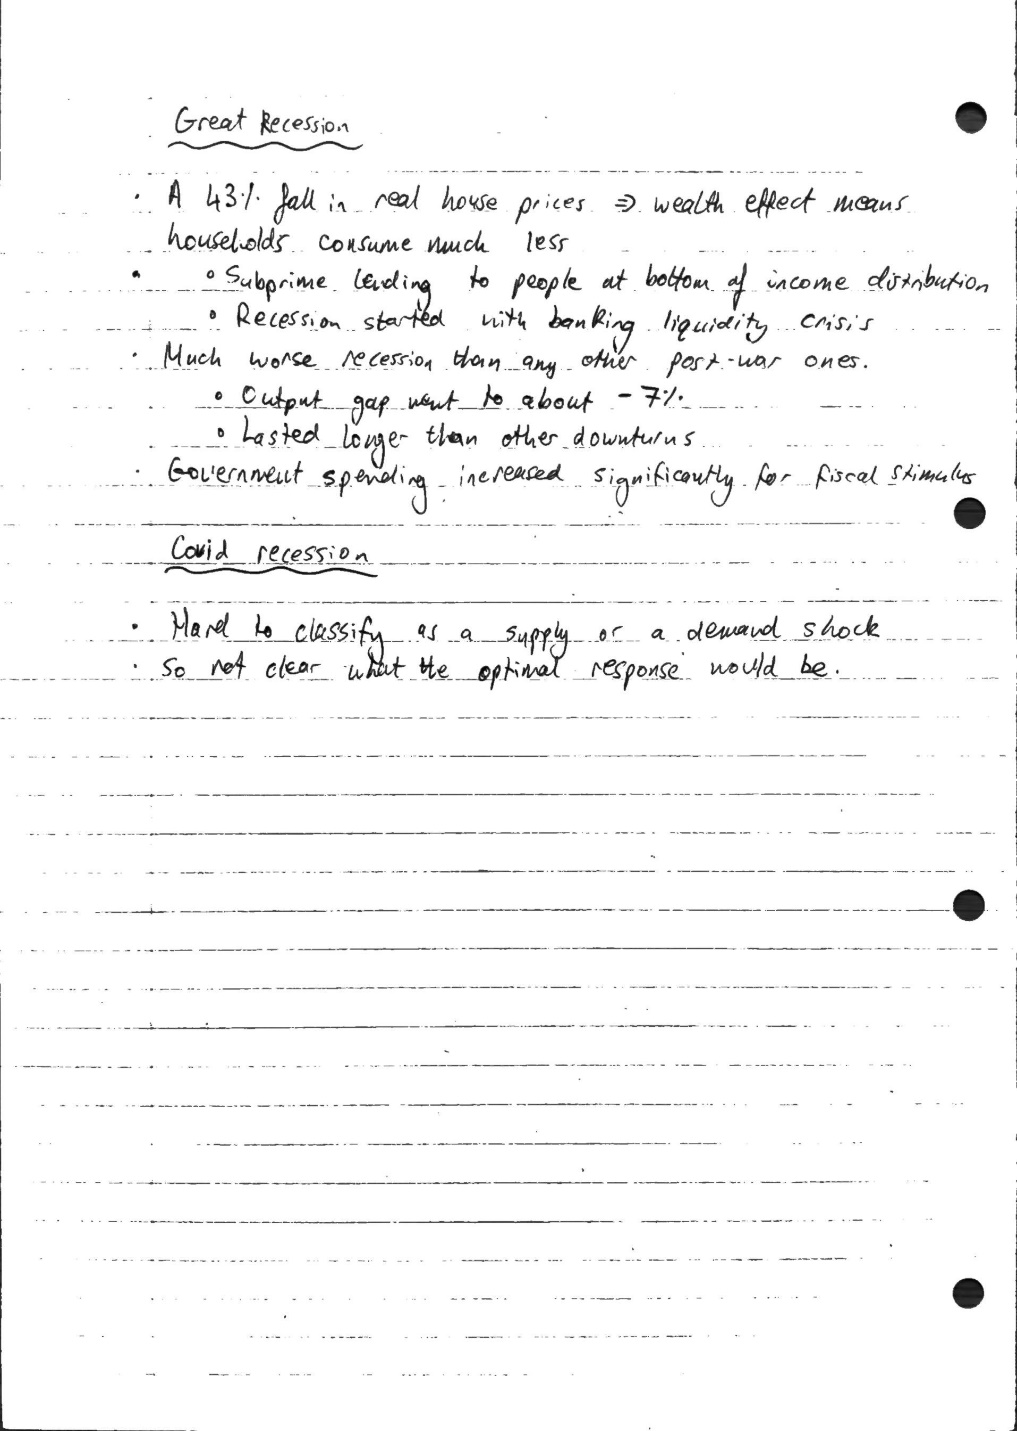 Great Recession
· A 43% fall in real house prices ⇒ wealth effect means
households consume much less
· ∘ Subprime lending to people at bottom of income distribution
∘ Recession started with banking liquidity crisis
· Much worse recession than any other post-war ones.
∘ Output gap went to about -7%.
∘ Lasted longer than other downturns
· Government spending increased significantly for fiscal stimulus
Covid recession
· Hard to classify as a supply or a demand shock
· So not clear what the optimal response would be.